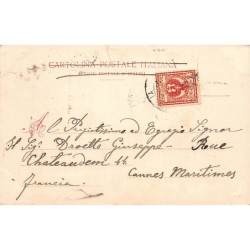 CARTOLINA POSTALE ITALIANA
Al Pregiatissimo ed Egregio Signor
Il Sig. Davotte Giuseppe - Roue
Chateaudem 44
Cannes Maritimes
francia